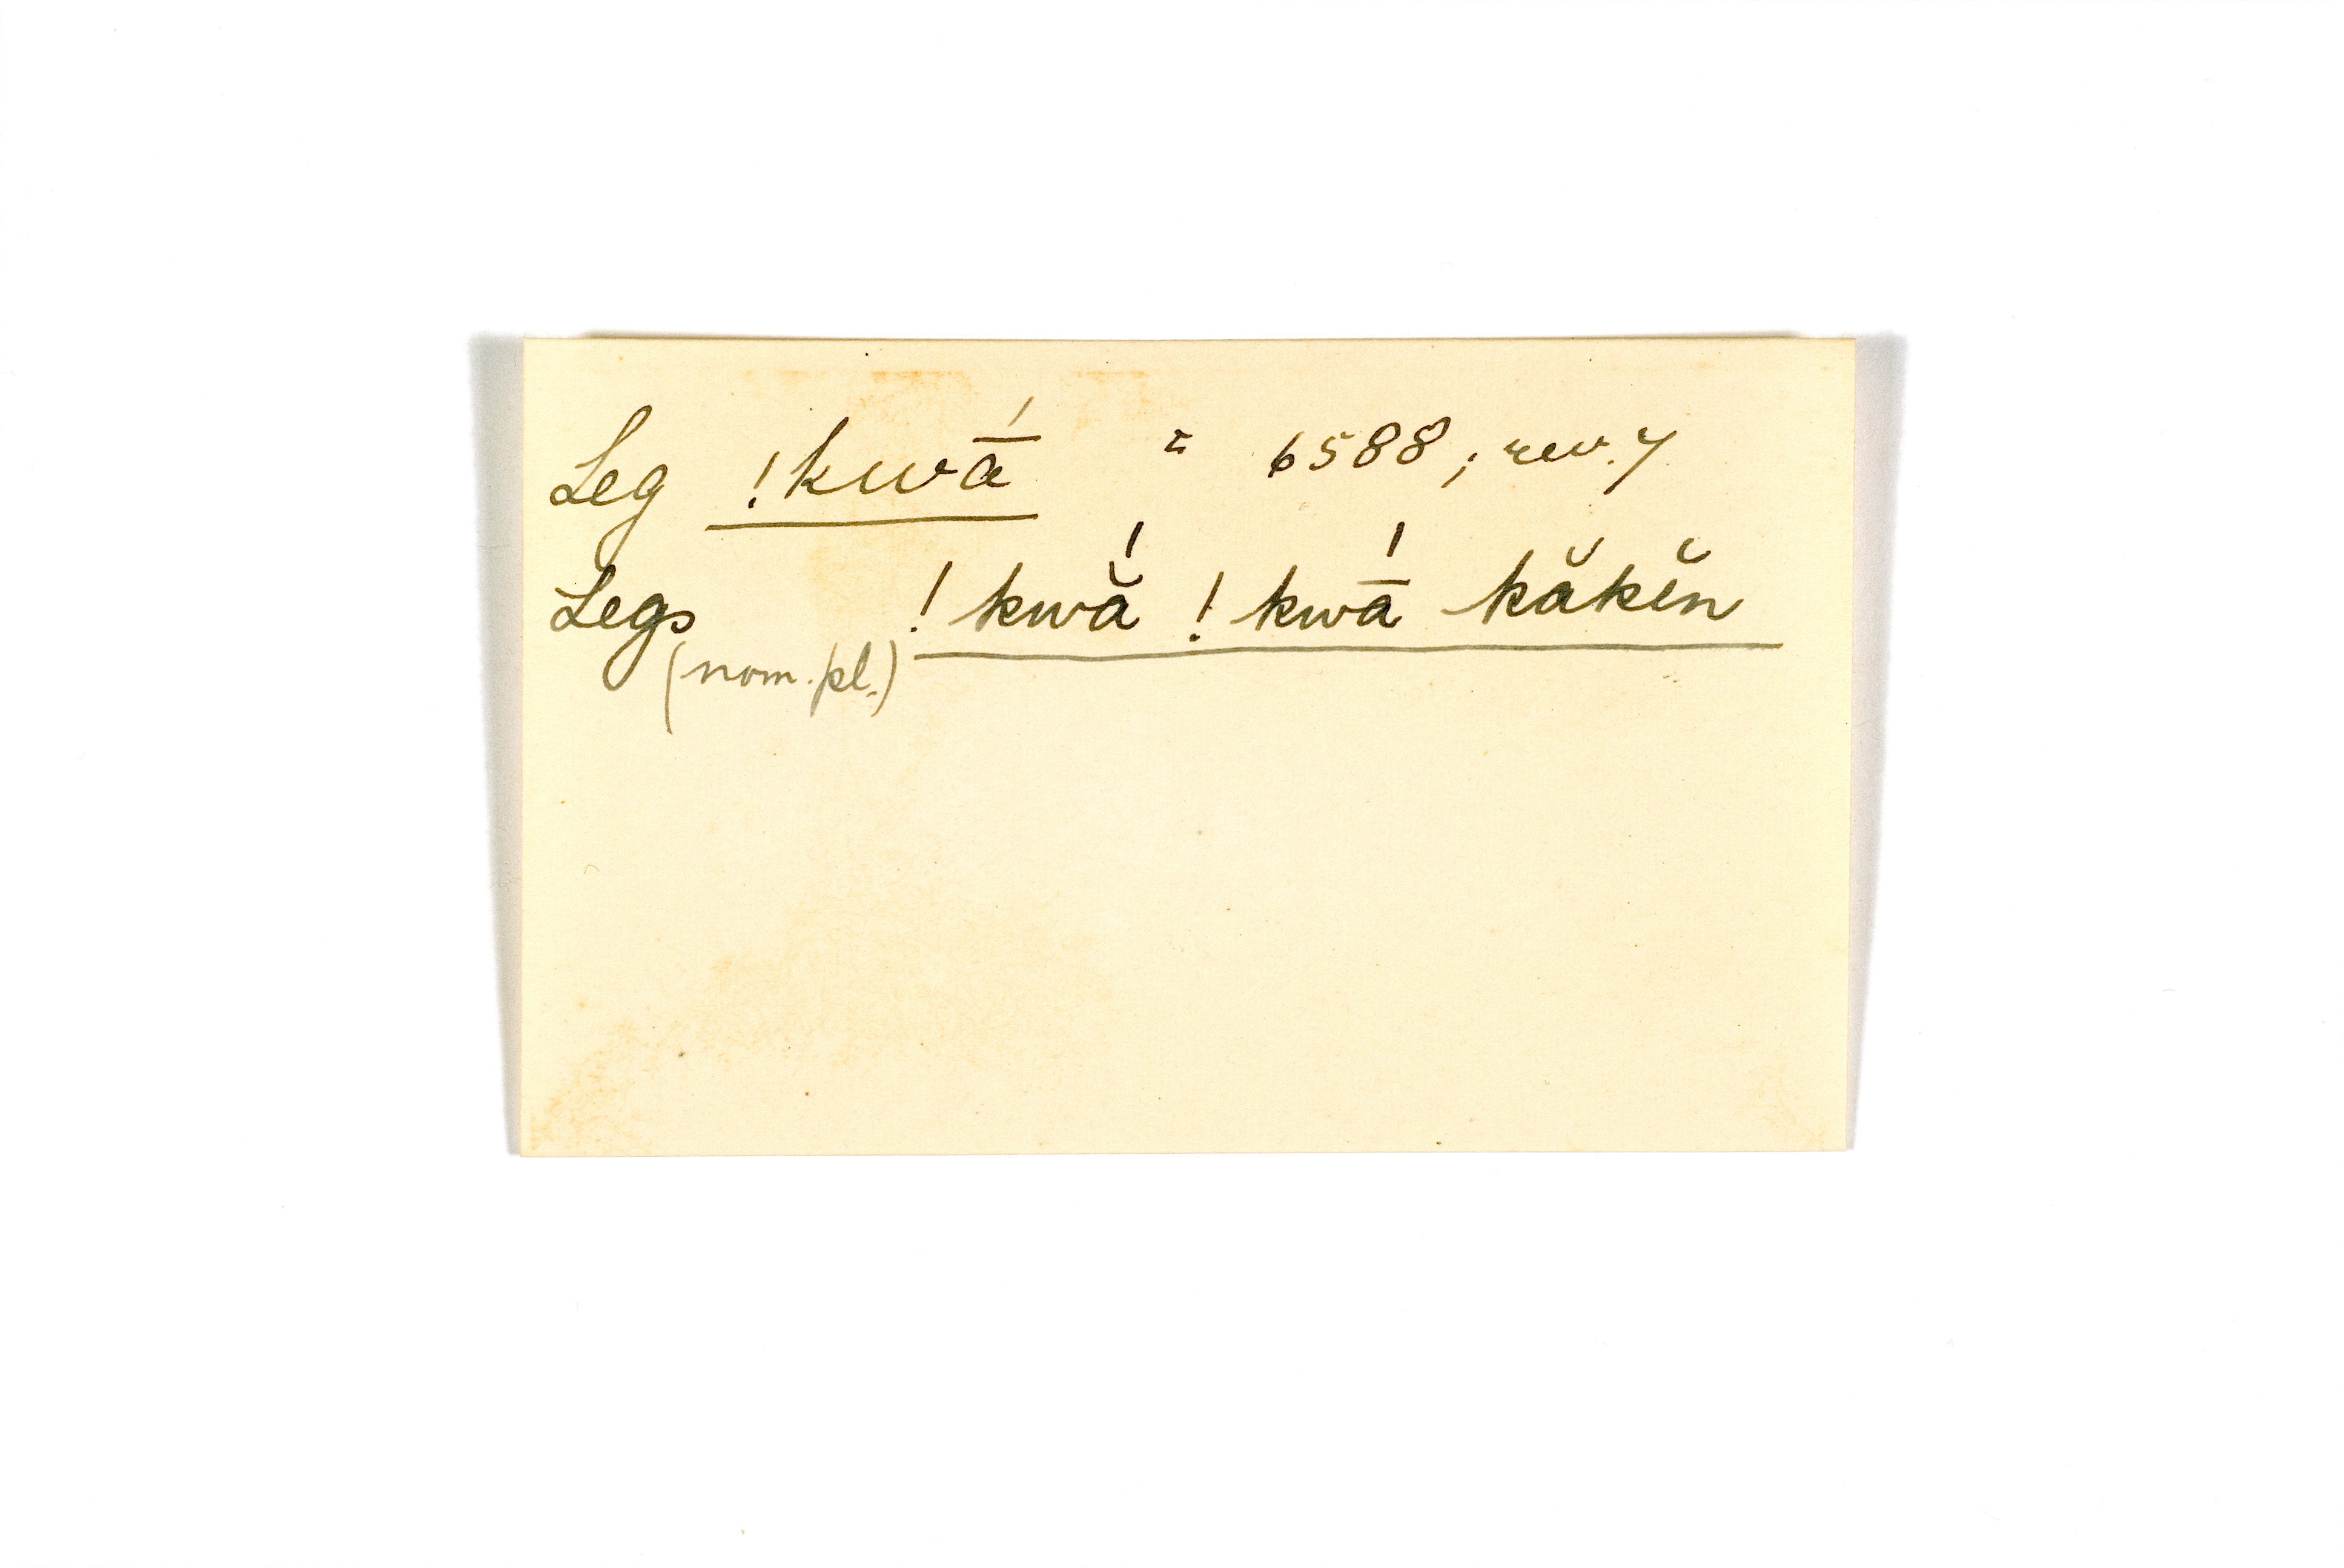 Leg !kwā́ = 6588; rev. 7
Legs !kwắ !kwā́ kăkĕn
(nom. pl.)